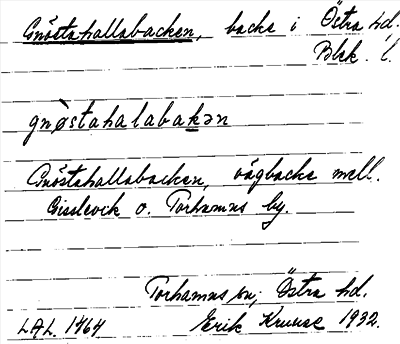 Gnöstahallabacken, backe i Östra hd.
Blek. l.
gnòstahalabakən
Gnöstahallabacken, vägbacke mell.
Gisslevik o. Torhamns by.
Torhamns sn, Östra hd.
LAL. 1464 Erik Kruuse 1932.